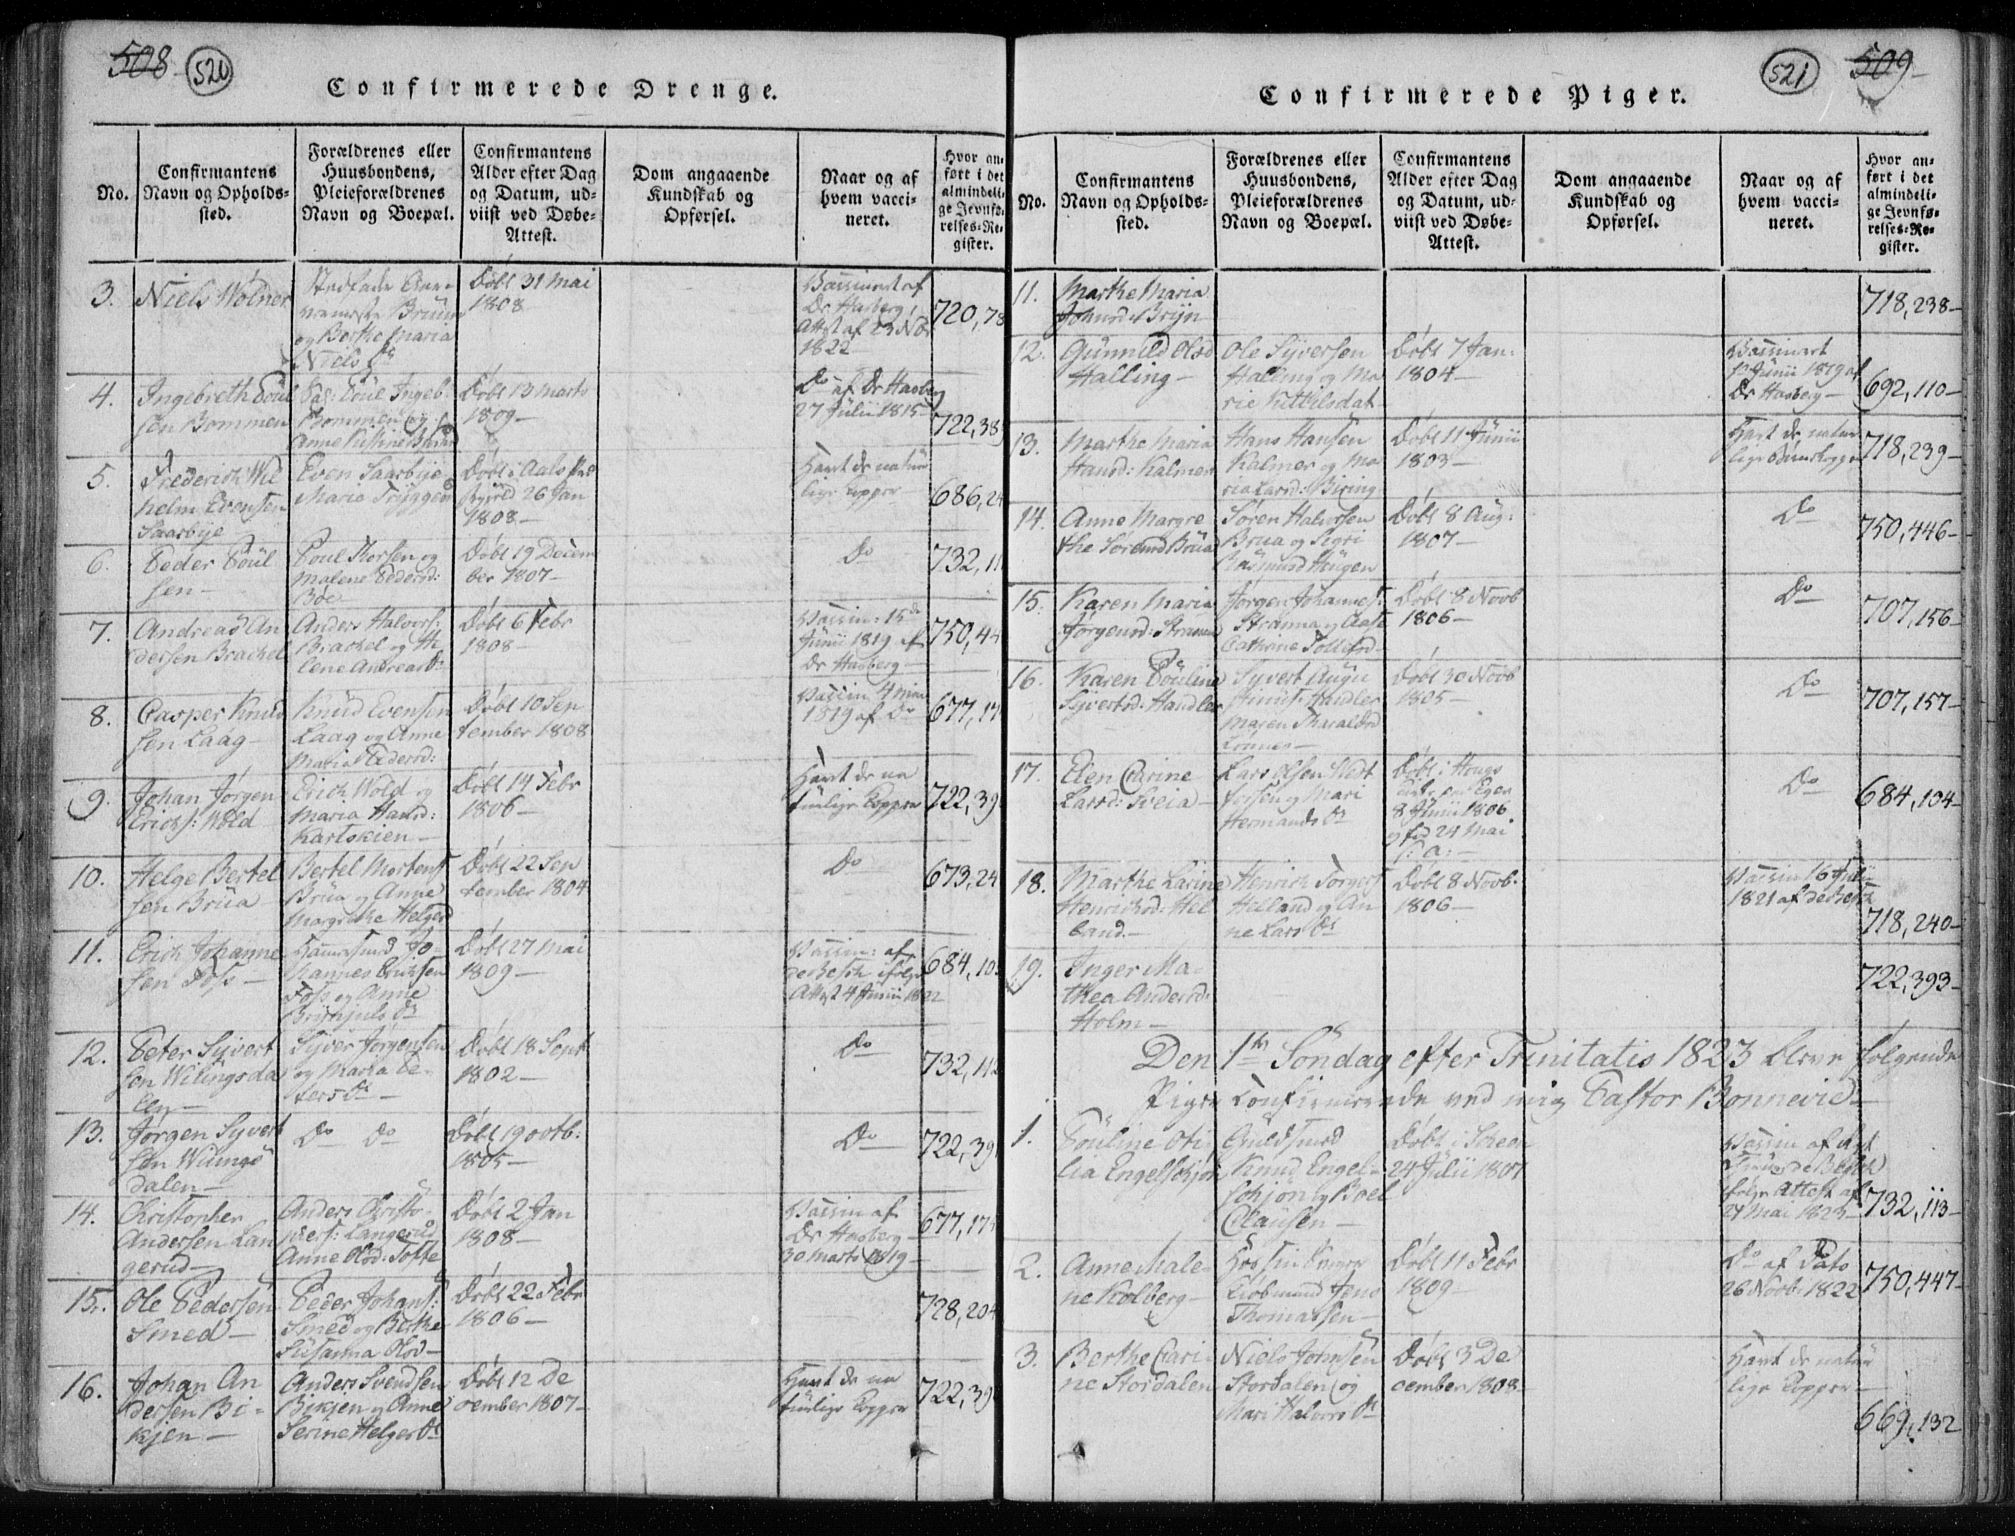 508 520
Confirmerede Drenge.
No.
Confirmantens
Navn og Opholds-
sted.
Forældrenes eller
Huusbondens,
Pleieforældrenes
Navn og Boepæl.
Confirmantens
Alder efter Dag
og Datum, ud-
viist ved Døbe-
Attest.
Dom angaaende
Kundskab og
Opførsel.
Naar og af
hvem vacci-
neret.
Hvor an-
ført i det
almindeli-
ge Jevnfø-
relses-Re-
gister.
3. Niels Wölner
og Berthe Maria
Niels D:
Døbt 31 Mai
1808
Vassineret af
Dr Hasberg
Attst af 23 Nov
1822
720,78
4. Ingebreth Poül
sen Bommen
Døbt 13 Marts
1809
Do af Dr Hasberg
27 Julii 1815
722,38
5. Frederich Wil
helm Evensen
Saarbye
Even Saarbye
Maria Tryggen
26 Jan
1808
Havt de natür
lige Kopper
686,24
6. Peder Poül
sen
Poul Thorsen og
Malene Pedersd:
Boe
Døbt 19 Decem
ber 1807
Do
732,11
7. Andreas An
dersen Brachel
Anders Halvors:
Brachel og He
lene Andreas D:
Døbt 6 Febr
1808
Vassin: 15de
Junii 1819 af
Dr Hasberg
750,44
8. Casper Knud
sen Laag
Knud Evensen
Laag og Anne
Maria Pedersd:
Døbt 10 Sep
tember 1808
1819 af Do
677,17
9. Johan Jörgen
Erichs: Wold
Erich Wold og
Maria Hansd:
Kartskien
Døbt 14 Febr
1806
Havt de na
turlige Kopper
722,39
10. Helge Bertel
sen Brüa
Bertel Mortens
Brüa og Anne
Margrethe Helgesd
Døbt 22 Sep
tember 1804
Do
673,24
11. Erich Johanne
sen Foss
Hammersmed Jo-
hannes Erichsen
Foss og Anne
Døbt 27 Mai
1809
Vassin: af
de Besch ifølge
Attst 4 Junii 1822
684,10
12. Peter Sÿvert
sen Wilingsda
len
Sÿver Jörgensen
og Maria Pe-
ters D:
Døbt 18 Sept
1802
Do
732,112
13. Jörgen Sÿvert
sen Wiings
dalen
Do Do
Døbt 19 Octb:
1805
Do
722,39
14. Christopher
Andersen Lan
gerud
Anders Christo-
phers: Langerud
Anne Olsd: Tofte
Døbt 2 Jan
1808
Vassin af
Dr Hasberg
30 Marts 1819
677,17
15. Ole Pedersen
Smed
Peder Johans:
Smed og Berthe
Susanna Olsd
Døbt 22 Febr
1806
728,204
16. Johan An
dersen Bi-
kjen
Anders Svendsen
Bikjen og Anne
Serine Helges D:
Døbt 12 De
cember 1807
Havt de na
turlige Kopper
722,39
521 509
Confirmerede Piger.
No.
Confirmantens
Navn og Opholds-
sted.
Forældrenes eller
Huusbondens,
Pleieforældrenes
Navn og Boepæl.
Confirmantens
Alder efter Dag
og Datum, ud-
viist ved Døbe-
Attest.
Dom angaaende
Kundskab og
Opførsel.
Naar og af
hvem vacci-
neret.
Hvor an-
ført i det
almindeli-
ge Jevnfø-
relses-Re-
gister.
11. Marthe Maria
Johnsd: Bryn
718,238
12. Gunnild Olsd
Halling
Ole Sÿversen
Halling og Ma
rie Kittelsdat
Døbt 7 Jan:
1804
Vassineret
Junii 1819 af
Dr Hasberg
692,110
13. Marthe Maria
Hansd: Kalmer
Hans Hansen
Kalmer og Ma
ria Larsd: Biring
Døbt 11 Junii
1803
Havt de natur
lige
718,239
14. Anne Margre
the Sörensd Brüa
Sören Halvorsen
Brua og Sigri
Rasmusd Haugen
Døbt 8 Aug:
1807
Do
750,446
15. Karen Maria
Jörgensd: Stranna
Jörgen Johannes:
Stranna og Aase
Cathrine Tollefsd
Døbt 8 Novb
1806
Do
707,156
16. Karen Pouline
Sÿvertsd: Handler
Sÿvert Augu
Handler
Maren Tharaldsd
Døbt 30 Novb
1805
Do
707,157
17. Elen Carine
Larsd: Sveia
Lars Olsen Vest
fossen og Mari
Hermands D:
Døbt i Hougs
8 Junii 1806
og fød 24 Mai
s: a:
Do
684,104
18. Marthe Larine
Henrichsd: Hel
land
Henrich Torgers
Helland og An
ne Lars D:
Døbt 8 Novb.
1806
Vassin 16 Juli
1821 af de Besch
718,240
19. Inger Ma-
thea Andersd:
Holm
722,393
Den 1ste Söndag efter Trinitatis 1823 bleve følgende
Piger Confirmerede ved mig Pastor Bonnevie
1. Pouline Oti
lia Engelschjön
Guldsmed
Knud Engel-
schjön og Boel
Clausen
Døbt i Scheen
24 Julii 1807
ifølge Attest af
27 Mai 1823
732,113
2. Anne Male-
ne Kolberg
Kiöbmand Jens
Thomassen
Døbt 11 Febr
1809
Do af Dato
26 Novb: 1822
750,447
3. Berthe Cari-
ne Stordalen
Niels Johnsen
Stordalen og
Mari Halvors D:
Døbt 3 De
cember 1808
Havt de natur
lige Kopper
669,132